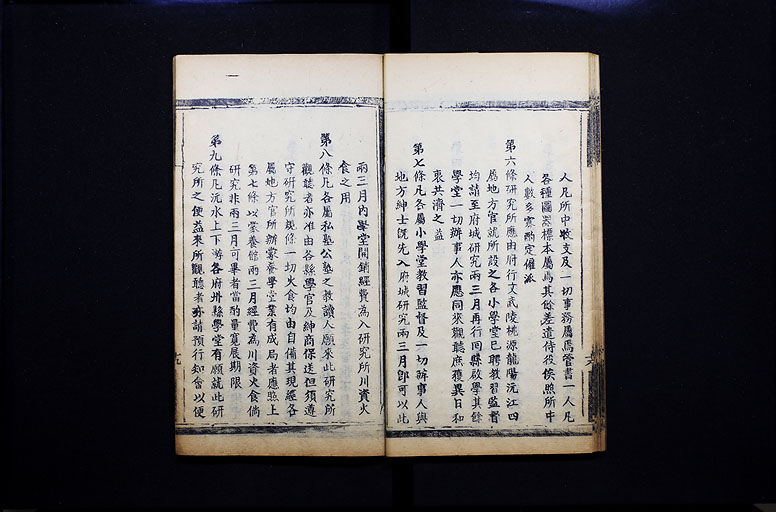 人凡所中收支及一切事務屬焉管書一人凡
各種圖器標本屬焉其餘差遣侍役俟照所中
人數多寡酌定僱派
第六條研究所應由府行文武陵桃源龍陽沅江四
屬地方官就所設之各小學堂已聘教習監督
均請至府城研究兩三月再行回縣啟學其餘
學堂一切辦事人亦應同來觀聽庶獲異日和
衷共濟之益
第七條凡各屬小學堂教習監督及一切辦事人與
地方紳士旣先入府城研究兩三月卽可以此
兩三月內學堂開銷經費為入研究所川資火
食之用
第八條凡各屬私塾公塾之教讀人願來此研究所
觀聽者亦准由各縣學官及紳商保送但須遵
守研究所規條一切火食均由自備其現經各
屬地方官所辦蒙養學堂業有成局者應照上
第七條以蒙養館兩三月經費為川資火食倘
研究非兩三月可畢者當酌量寬展期限
第九條凡沅水上下游各府州縣學堂有願就此研
究所之便益來所觀聽者亦請預行知會以便